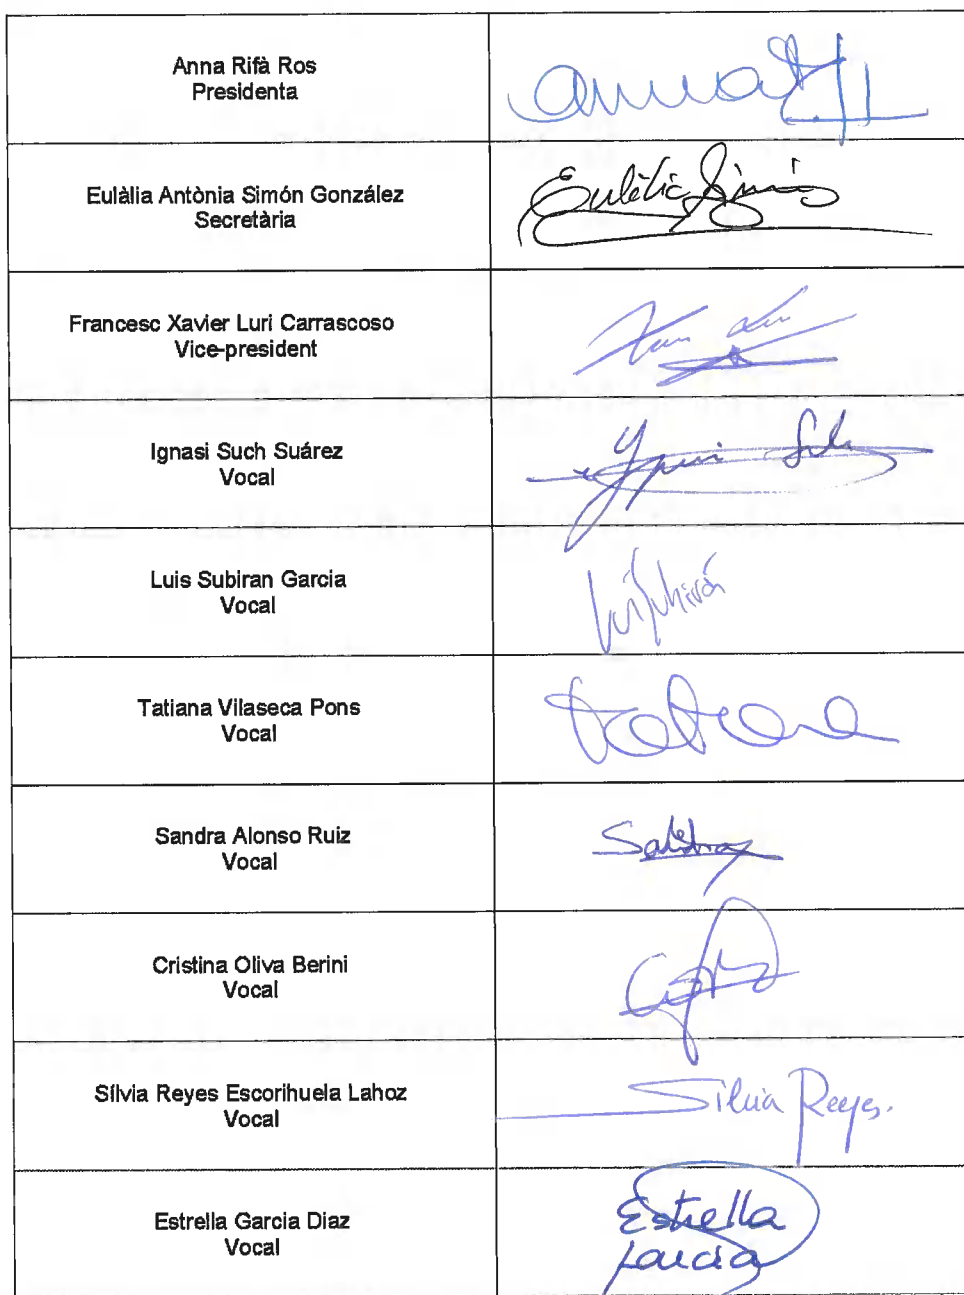 Anna Rifà Ros
Presidenta
anna
Eulàlia Antònia Simón González
Secretària
Eulàlia Simón
Francesc Xavier Luri Carrascoso
Vice-president
Ignasi Such Suárez
Vocal
Ignasi Such
Luis Subiran Garcia
Vocal
Tatiana Vilaseca Pons
Vocal
Tatiana
Sandra Alonso Ruiz
Vocal
Sandra
Cristina Oliva Berini
Vocal
Sílvia Reyes Escorihuela Lahoz
Vocal
Silvia Reyes.
Estrella Garcia Diaz
Vocal
Estrella
Garcia